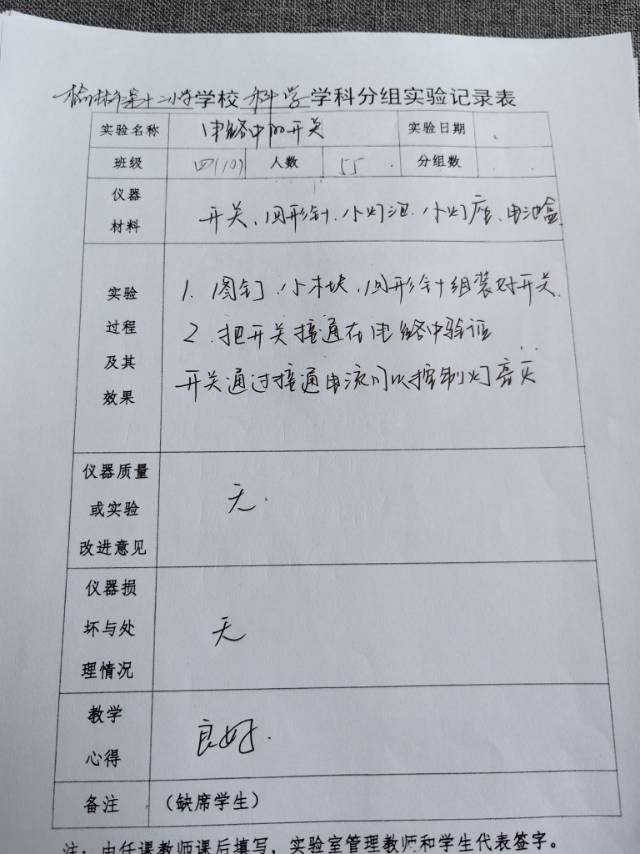 榆林市第十二小学学校 科学 学科分组实验记录表
实验名称 电路中的开关 实验日期
班级 四(10) 人数 55 分组数
仪器
材料
开关、回形针、小灯泡、小灯座、电池盒
实验
过程
及其
效果
1. 图钉、小木块、回形针组装好开关.
2. 把开关接通在电路中验证
开关通过接通电流可以控制灯亮灭
仪器质量
或实验
改进意见
无.
仪器损
坏与处
理情况
无
教学
心得
良好.
备注 （缺席学生）
注：由任课教师课后填写，实验室管理教师和学生代表签字。